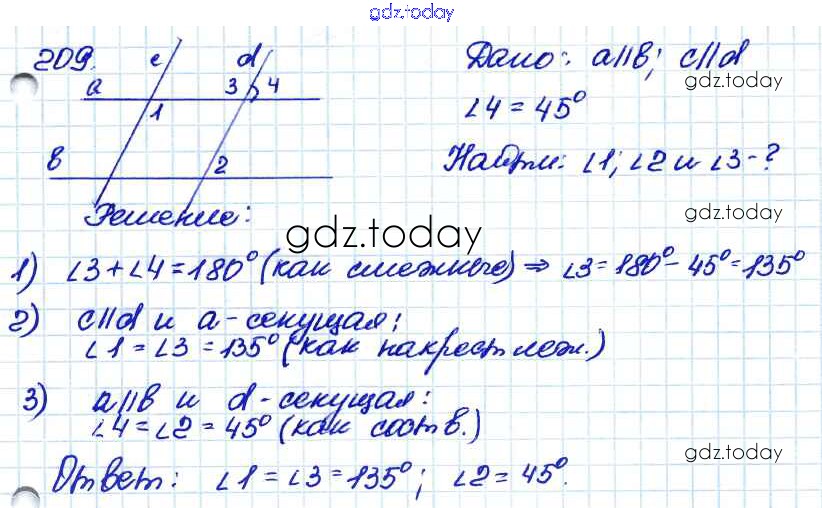 gdz.today
209.
c d
a 3 4
1
в 2
Дано: a||в; c||d
gdz.today
∠4 = 45°
Найти: ∠1; ∠2 и ∠3 - ?
Решение:
gdz.today
gdz.today
1) ∠3 + ∠4 = 180° (как смежные) ⇒ ∠3 = 180° - 45° = 135°
2) c||d и a - секущая:
∠1 = ∠3 = 135° (как накрест леж.)
gdz.today
3) a||в и d - секущая:
∠4 = ∠2 = 45° (как соотв.)
gdz.today
Ответ: ∠1 = ∠3 = 135°; ∠2 = 45°.